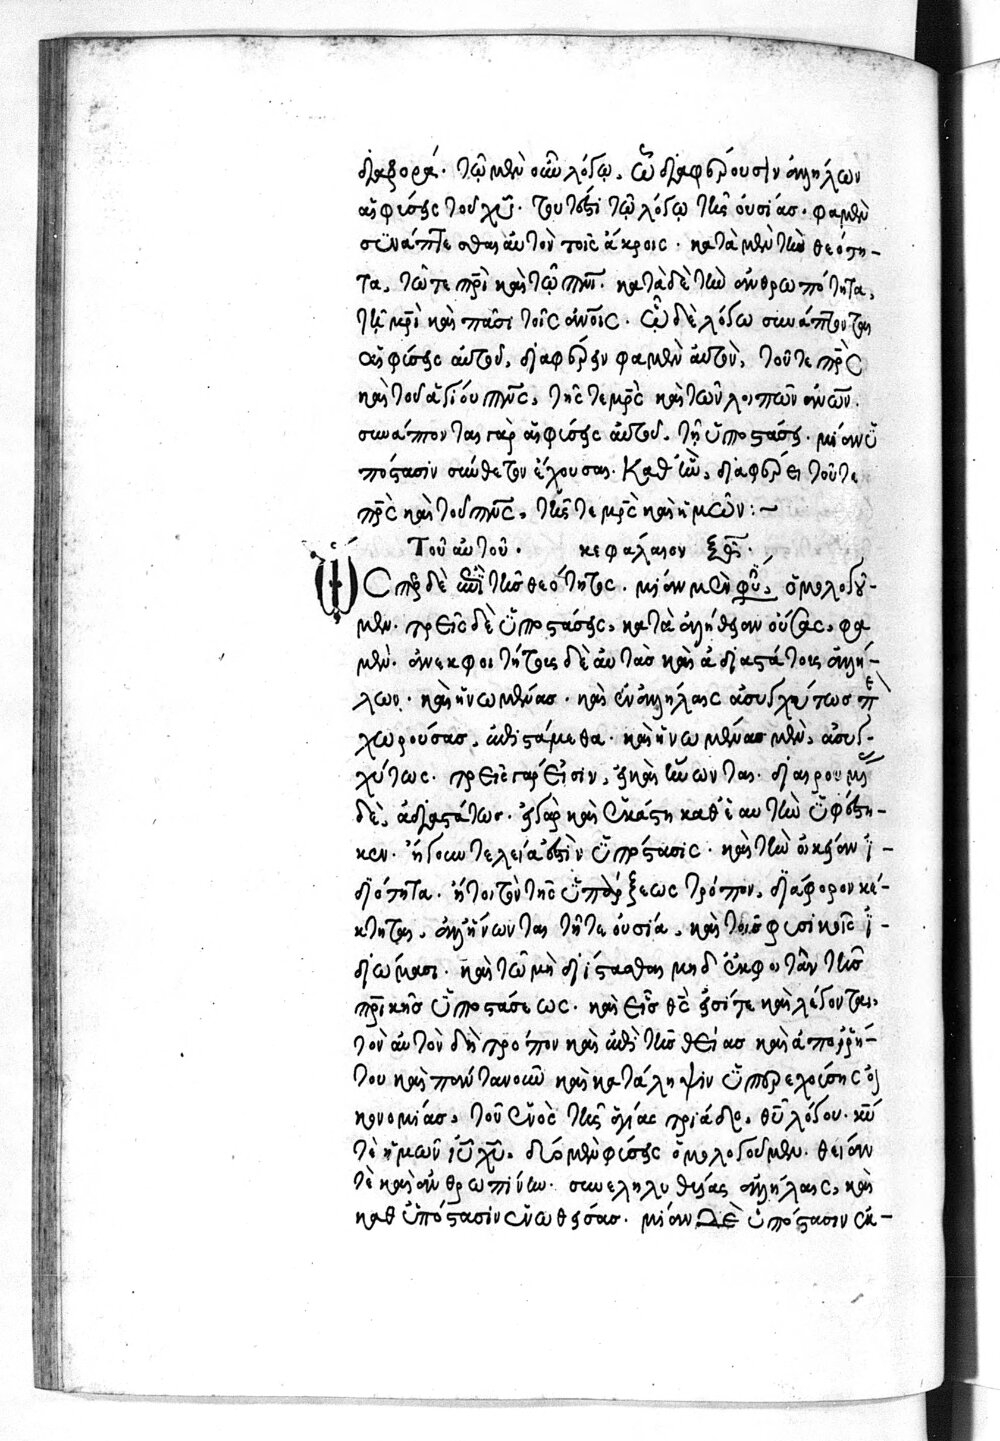 διαφορά. τῷ μὲν οὖν λόγῳ, ᾧ διαφέρουσιν ἀλλήλων
αἱ φύσεις τοῦ χυ̅. τουτέστι τῷ λόγῳ τῆς οὐσίας. φαμὲν
συνάπτεσθαι αὐτὸν τοῖς ἄκροις. κατὰ μὲν τὴν θεότη-
τα, τῷ τε πρι̅ καὶ τῷ πνι̅. κατὰ δὲ τὴν ἀνθρωπότητα,
τῇ μρι̅ καὶ πᾶσι τοῖς ἀνοις̅. ᾧ δὲ λόγω συνάπτονται
αἱ φύσεις αὐτοῦ, διαφέρειν φαμὲν αὐτὸν, τοῦ τε πρς̅
καὶ τοῦ ἁγίου πνς̅, τῆς τε μρς̅ καὶ τῶν λοιπῶν ἀνων̅.
συνάπτονται γὰρ αἱ φύσεις αὐτοῦ, τῇ ὑποστάσει. μίαν ὑ
πόστασιν σύνθετον ἔχουσαι. Καθ' ἣν, διαφέρει τοῦ τε
πρς̅ καὶ τοῦ πνς̅, τῆς τε μρς̅ καὶ ἡμῶν:~
Τοῦ αὐτοῦ. κεφάλαιον
Ὥσπερ δὲ ἐπὶ τῆς θεότητος. μίαν μὲν φύσιν, ὁμολογοῦ-
μεν. τρεῖς δὲ ὑποστάσεις, κατὰ ἀλήθειαν οὔσας, φα
μὲν. ἀνεκφοιτήτους δὲ αὐτὰς καὶ ἀδιαστάτους ἀλλή-
λων. καὶ ἡνωμένας. καὶ ἐν ἀλλήλαις ἀσυγχύτως πε
χωρούσας, ἐπιστάμεθα. καὶ ἡνωμένας μὲν, ἀσυγ-
χύτως. τρεῖς γάρ εἰσιν, εἰ καὶ ἥνωνται. διαιρουμένας
δὲ, ἀδιαστάτως. εἰ γὰρ καὶ ἑκάστη καθ' ἑαυτὴν ὑφέστη-
κεν. ἤγουν τελεία ἐστὶν ὑπόστασις. καὶ τὴν οἰκείαν ἰ-
διότητα. ἤτοι τὸν τῆς ὑπάρξεως τρόπον, διάφορον κέ-
κτηται, ἀλλ' ἥνωνται τῇ τε οὐσία, καὶ τοῖς φυσικοῖς ἰ-
διώμασι. καὶ τῷ μὴ διίστασθαι μηδ' ἐκφοιτᾶν τῆς
πρικῆς̅ ὑποστάσεως. καὶ εἷς θς̅ εἰσί τε καὶ λέγονται,
τὸν αὐτὸν δὴ τρόπον καὶ ἐπὶ τῆς θείας καὶ ἀπορρή-
του καὶ πάντα νοῦν καὶ κατάληψιν ὑπερεχούσης οἰ
κονομίας, τοῦ ἑνὸς τῆς ἁγίας τριάδος, θυ̅ λόγου. κυ̅
τὲ ἡμῶν ἰυ̅ χυ̅. δύο μὲν φύσεις ὁμολογοῦμεν. θείαν
τὲ καὶ ἀνθρωπίνην. συνεληλυθυίας ἀλλήλαις, καὶ
καθ' ὑπόστασιν ἑνωθείσας. μίαν δὲ ὑπόστασιν ἐκ-